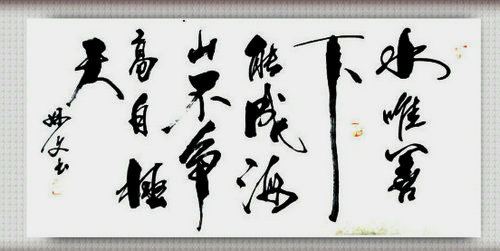 水唯善
下
能成海
山不争
高自極
天